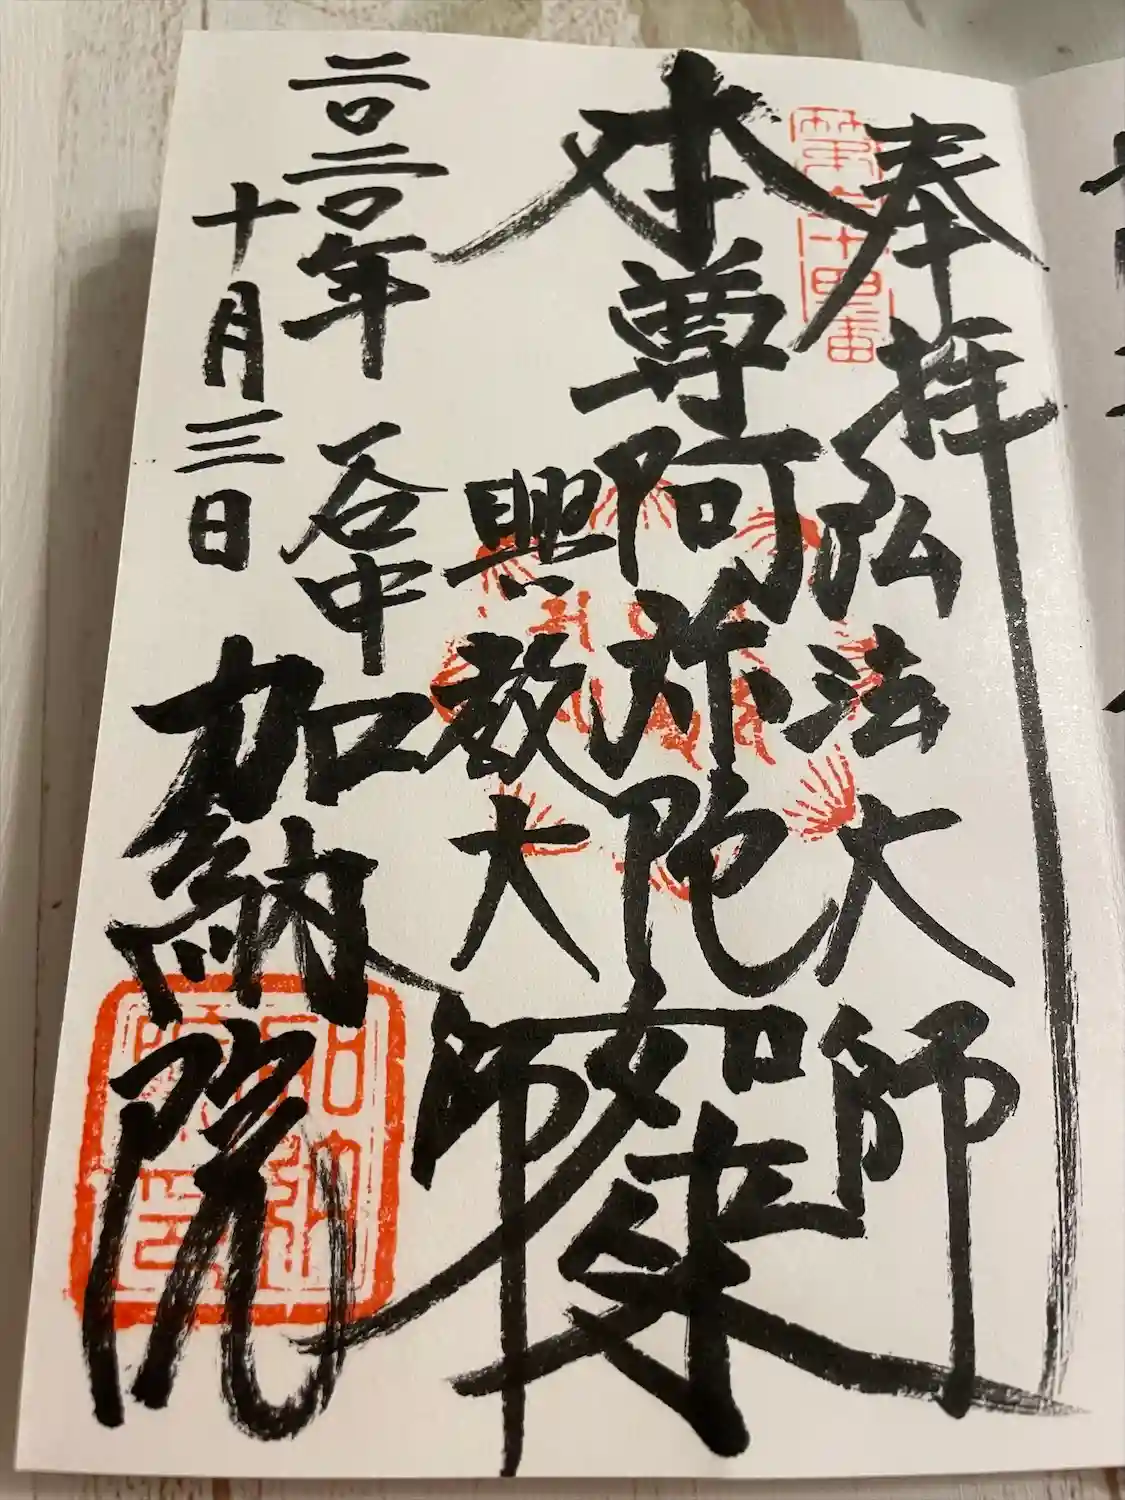 奉拝
第六十四番
弘法大師
本尊阿弥陀如来
興教大師
二〇二〇年
十月三日
谷中
加納院